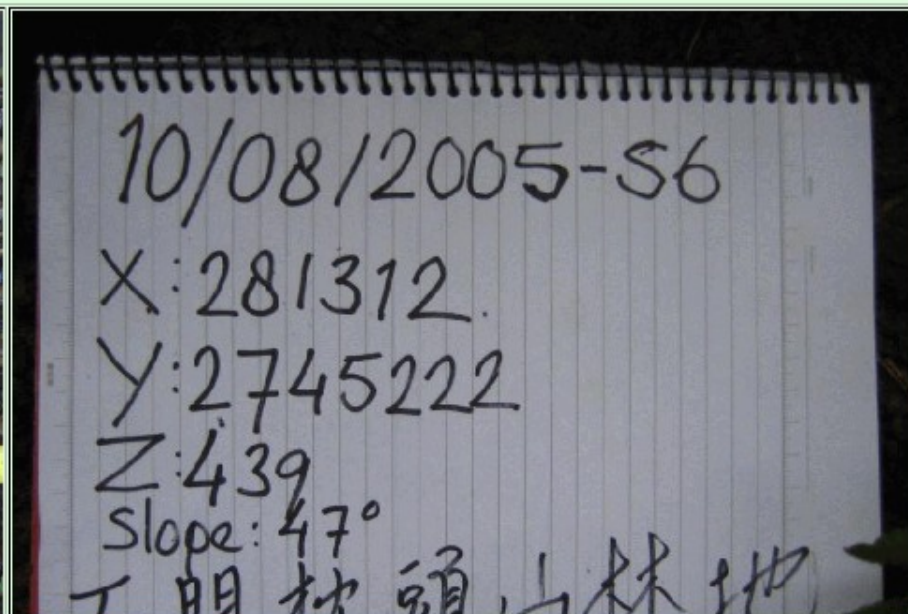 10/08/2005-S6
X:281312.
Y:2745222
Z:439
Slope: 47°
頭山林地